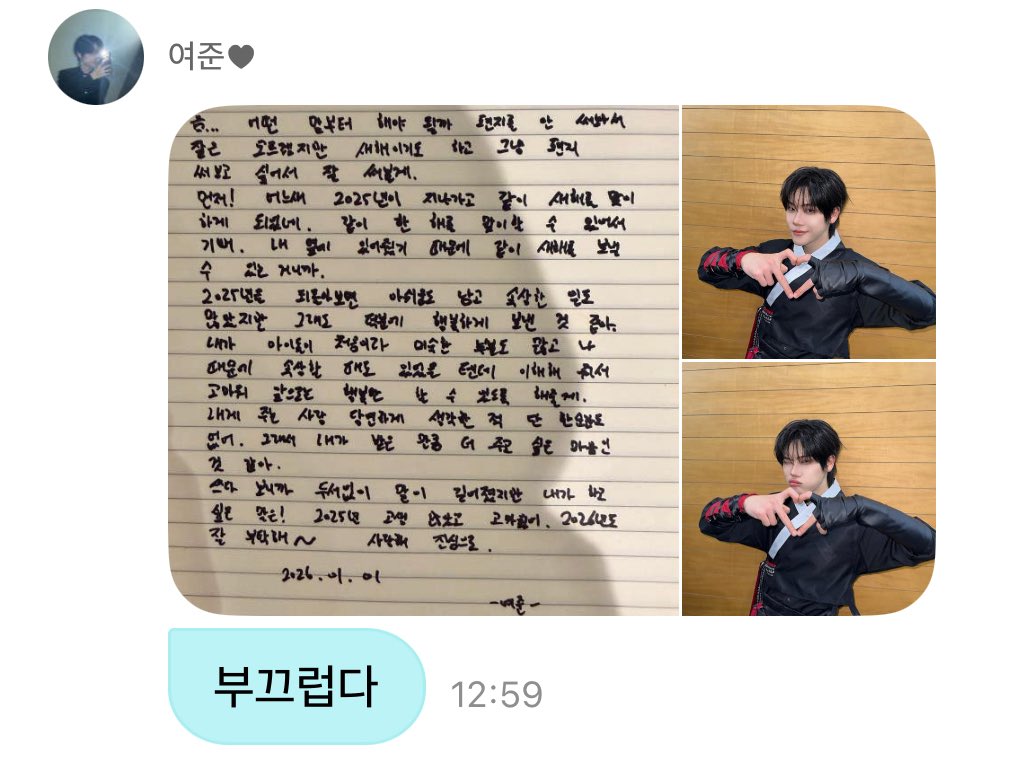 여준♥
음... 어떤 말부터 해야 될까 편지를 안 써봐서
잘은 모르겠지만 새해이기도 하고 그냥 편지
써보고 싶어서 잘 써볼게.
먼저! 어느새 2025년이 지나가고 같이 새해를 맞이
하게 되었네. 같이 한 해를 맞이할 수 있어서
기뻐. 내 옆에 있어줬기 때문에 같이 새해를 보낼
수 있는 거니까.
2025년을 되돌아보면 아쉬움도 남고 속상한 일도
많았지만 그래도 덕분에 행복하게 보낸 것 같아.
내가 아이돌이 처음이라 미숙한 부분도 많고 나
때문에 속상할 때도 있었을 텐데 이해해 줘서
고마워 앞으로는 행복만 할 수 있도록 해줄게.
내게 주는 사랑 당연하게 생각한 적 단 한순간도
없어. 그래서 내가 받은 만큼 더 주고 싶은 마음인
것 같아.
쓰다 보니까 두서없이 말이 길어졌지만 내가 하고
싶은 말은! 2025년 고생 많았고 고마웠어. 2026년도
잘 부탁해~ 사랑해 진심으로.
2026.01.01
-여준-
부끄럽다
12:59